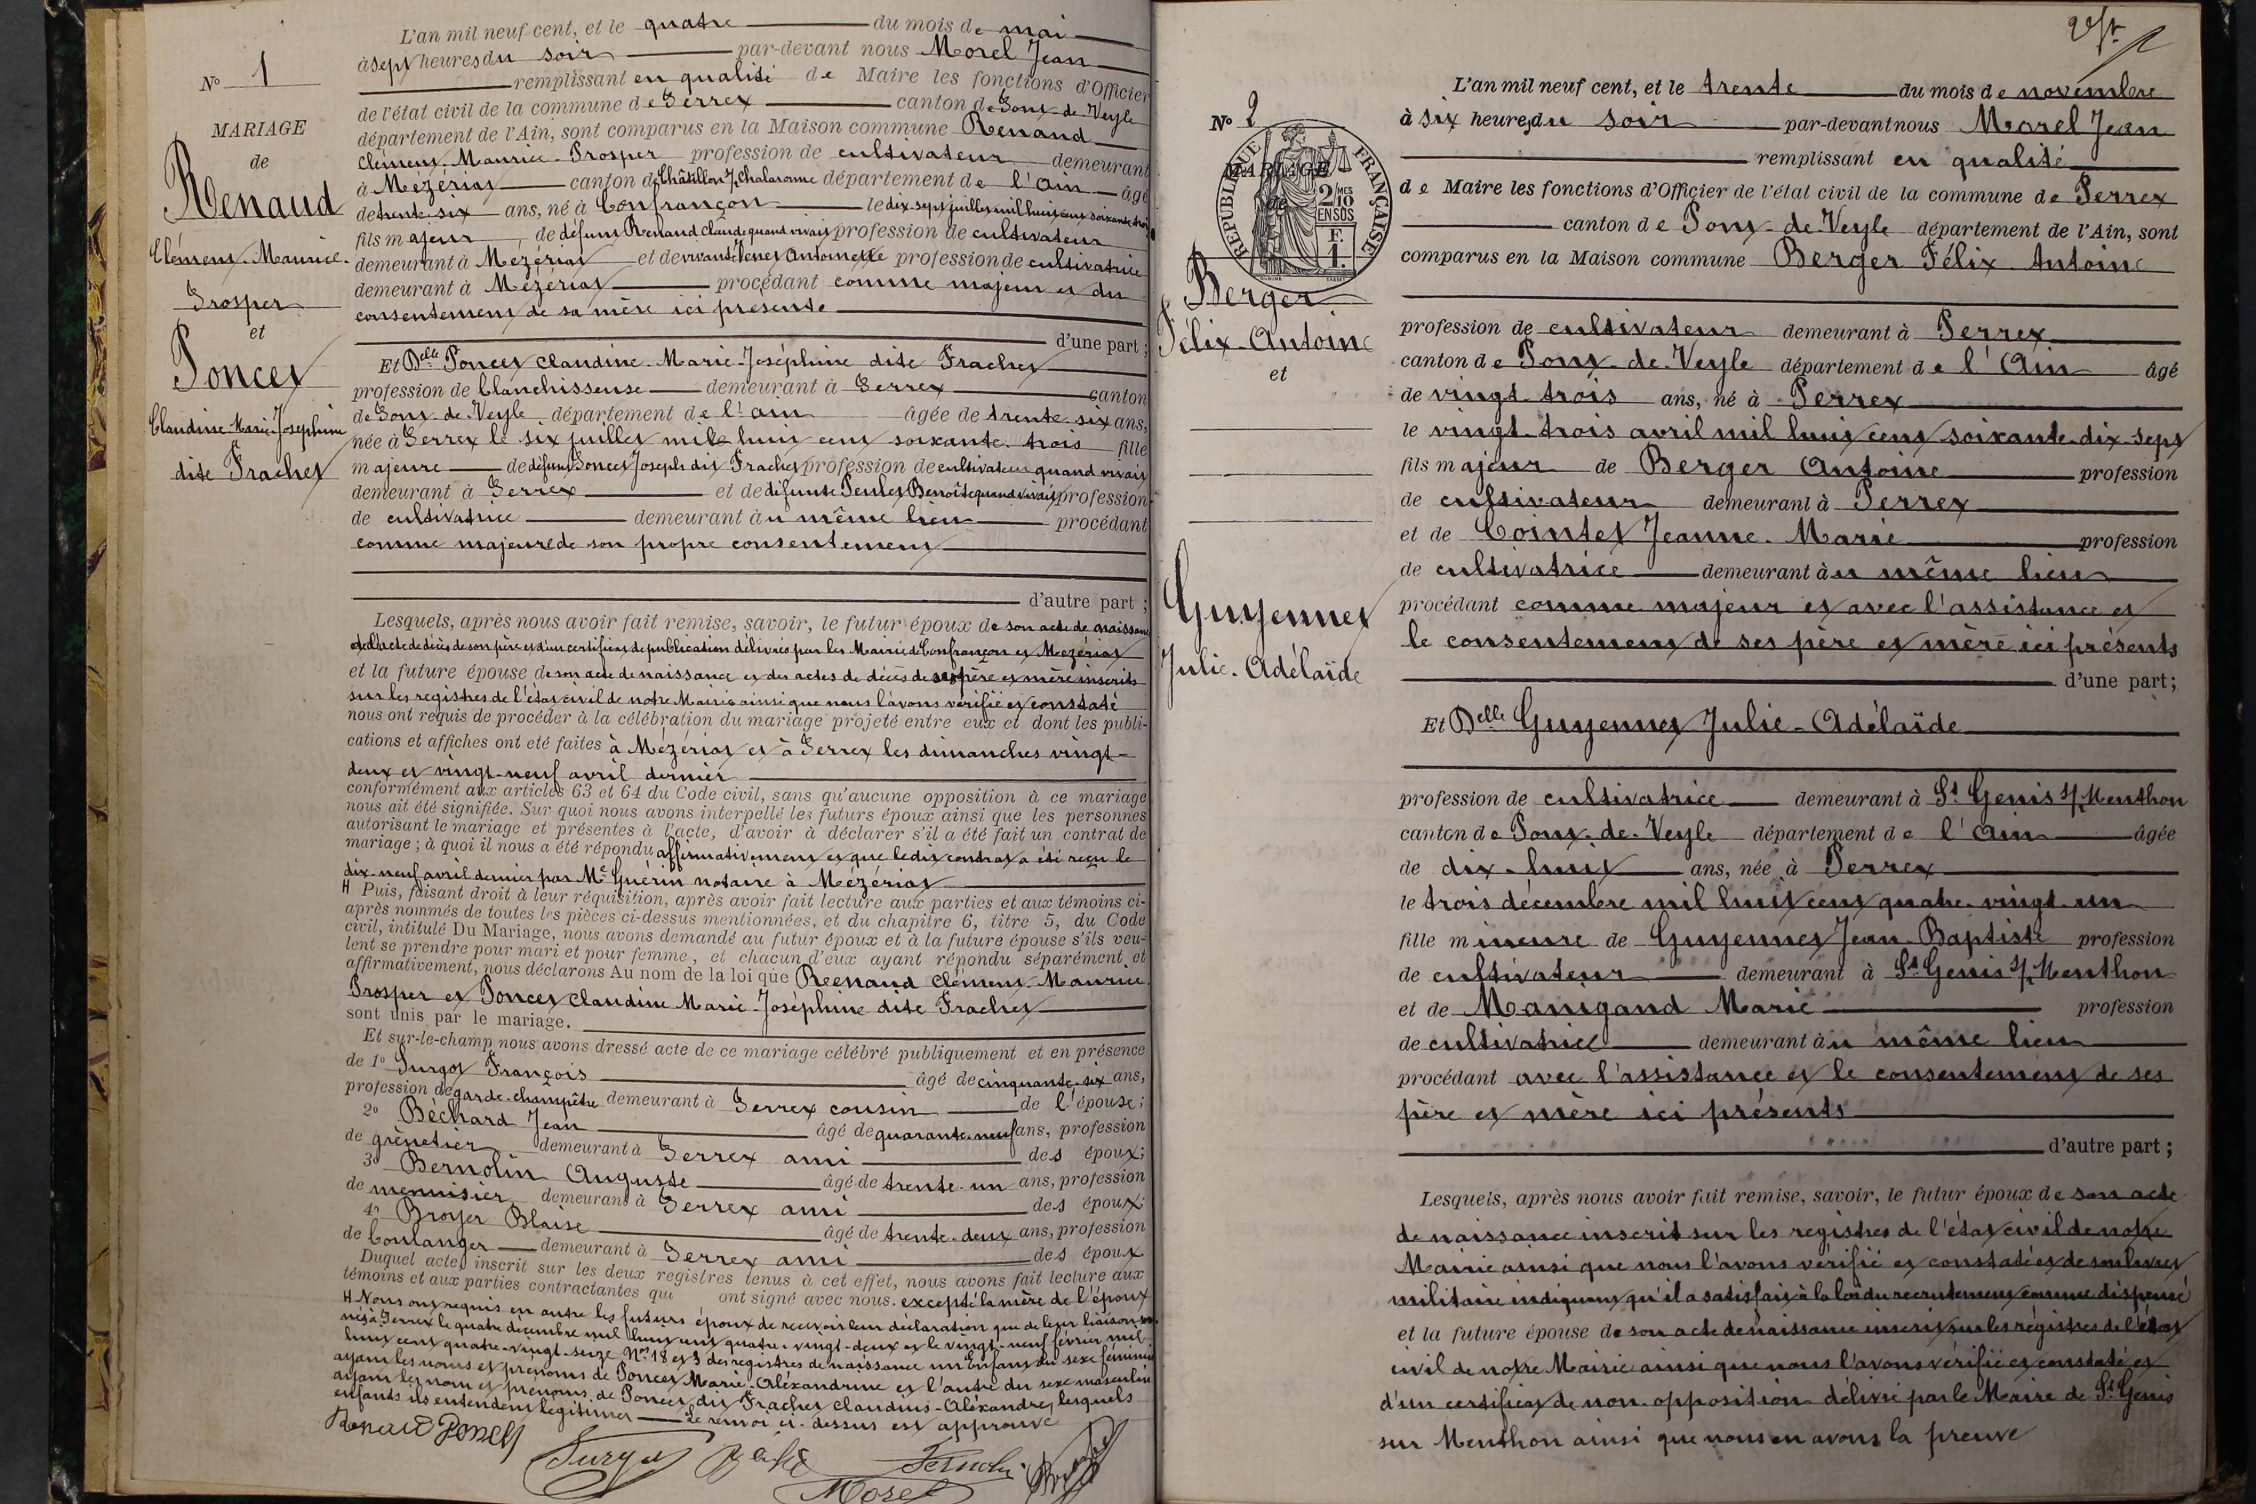 L'an mil neuf cent, et le quatre du mois de mai
à sept heures du soir par-devant nous Morel Jean
remplissant en qualité de Maire les fonctions d'Officier
de l'état civil de la commune de Perrex canton de Pont-de-Veyle
département de l'Ain, sont comparus en la Maison commune Renaud
Clément-Maurice-Prosper profession de cultivateur demeurant
à Mézériat canton de Châtillon s/ Chalaronne département de l'Ain âgé
de trente-six ans, né à Confrançon le dix-sept juillet mil huit cent soixante trois
fils majeur de défunt Renaud Claude quand vivait profession de cultivateur
demeurant à Mézériat et de vivante Antoinette profession de cultivatrice
demeurant à Mézériat procédant comme majeur et du
consentement de sa mère ici présente
d'une part ;
Et Delle Poncet Claudine-Marie-Joséphine dite Frachet
profession de blanchisseuse demeurant à Perrex canton
de Pont-de-Veyle département de l'ain âgée de trente-six ans,
née à Perrex le six juillet mil huit cent soixante-trois fille
majeure de défunt Poncet Joseph dit Frachet profession de cultivateur quand vivait
demeurant à Perrex et de défunte Benoîte quand vivait profession
de cultivatrice demeurant au même lieu procédant
comme majeure de son propre consentement
d'autre part ;
Lesquels, après nous avoir fait remise, savoir, le futur époux de son acte de naissance
de l'acte de décès de son père et d'un certificat de publication délivrés par les Mairie de Confrançon et Mézériat
et la future épouse de son acte de naissance et des actes de décès de ses père et mère inscrits
sur les registres de l'état civil de notre Mairie ainsi que nous l'avons vérifié et constaté
nous ont requis de procéder à la célébration du mariage projeté entre eux et dont les publi-
cations et affiches ont été faites à Mézériat et à Perrex les dimanches vingt-
deux et vingt-neuf avril dernier
conformément aux articles 63 et 64 du Code civil, sans qu'aucune opposition à ce mariage
nous ait été signifiée. Sur quoi nous avons interpellé les futurs époux ainsi que les personnes
autorisant le mariage et présentes à l'acte, d'avoir à déclarer s'il a été fait un contrat de
mariage ; à quoi il nous a été répondu affirmativement et que ledit contrat a été reçu le
dix-neuf avril dernier par Me Guérin notaire à Mézériat
H Puis, faisant droit à leur réquisition, après avoir fait lecture aux parties et aux témoins ci-
après nommés de toutes les pièces ci-dessus mentionnées, et du chapitre 6, titre 5, du Code
civil, intitulé Du Mariage, nous avons demandé au futur époux et à la future épouse s'ils veu-
lent se prendre pour mari et pour femme, et chacun d'eux ayant répondu séparément et
affirmativement, nous déclarons Au nom de la loi que Renaud Clément-Maurice
Prosper et Poncet Claudine Marie-Joséphine dite Frachet
sont unis par le mariage.
Et sur-le-champ nous avons dressé acte de ce mariage célébré publiquement et en présence
de 1° Surgot François âgé de cinquante-six ans,
profession de garde-champêtre demeurant à Perrex cousin de l'épouse ;
2° Béchard Jean âgé de quarante-neuf ans, profession
de grènetier demeurant à Perrex ami des époux ;
3° Bernolin Auguste âgé de trente-un ans, profession
de menuisier demeurant à Perrex ami des époux ;
4° Broyer Blaise âgé de trente-deux ans, profession
de boulanger demeurant à Perrex ami des époux
Duquel acte, inscrit sur les deux registres tenus à cet effet, nous avons fait lecture aux
témoins et aux parties contractantes qui ont signé avec nous. excepté la mère de l'époux
H Nous ont requis en outre les futurs époux de recevoir leur déclaration que de leur liaison sont
nés à Perrex le quatre décembre mil huit cent quatre-vingt-deux et le vingt-neuf février mil
huit cent quatre-vingt-seize Nos 18 et 3 des registres de naissance un Enfant du sexe féminin
ayant les noms et prénoms de Poncet Marie-Aléxandrine et l'autre du sexe masculin
ayant les nom et prénoms de Poncet dit Frachet Claudius-Aléxandre, lesquels
enfants ils entendent légitimer Le renvoi ci-dessus est approuvé
Renaud Poncet
Surgot
Morel
N° 1
MARIAGE
de
Renaud
Clément-Maurice-
Prosper
et
Poncet
Claudine-Marie-Joséphine
dite Frachet
L'an mil neuf cent, et le trente du mois de novembre
à six heures du soir par-devant nous Morel Jean
remplissant en qualité
de Maire les fonctions d'Officier de l'état civil de la commune de Perrex
canton de Pont-de-Veyle département de l'Ain, sont
comparus en la Maison commune Berger Félix-Antoine
profession de cultivateur demeurant à Perrex
canton de Pont-de-Veyle département de l'Ain âgé
de vingt-trois ans, né à Perrex
le vingt-trois avril mil huit cent soixante-dix-sept
fils majeur de Berger Antoine profession
de cultivateur demeurant à Perrex
et de Cointet Jeanne-Marie profession
de cultivatrice demeurant au même lieu
procédant comme majeur et avec l'assistance et
le consentement de ses père et mère ici présents
d'une part ;
Et Delle Guyennet Julie-Adélaïde
profession de cultivatrice demeurant à St Genis s/ Menthon
canton de Pont-de-Veyle département de l'Ain âgée
de dix-huit ans, née à Perrex
le trois décembre mil huit cent quatre-vingt-un
fille mineure de Guyennet Jean-Baptiste profession
de cultivateur demeurant à St Genis s/ Menthon
et de Manigand Marie profession
de cultivatrice demeurant au même lieu
procédant avec l'assistance et le consentement de ses
père et mère ici présents
d'autre part ;
Lesquels, après nous avoir fait remise, savoir, le futur époux de son acte
de naissance inscrit sur les registres de l'état civil de notre
Mairie ainsi que nous l'avons vérifié et constaté et de son livret
militaire indiquant qu'il a satisfait à la loi du recrutement comme dispensé
et la future épouse de son acte de naissance inscrit sur les régistres de l'état
civil de notre Mairie ainsi que nous l'avons vérifié et constaté et
d'un certificat de non-opposition délivré par le Maire de St Genis
sur Menthon ainsi que nous en avons la preuve
N° 2
MARIAGE
de
RÉPUBLIQUE FRANÇAISE
2/10 MES
EN SUS
F. 1.
Berger
Félix-Antoine
et
Guyennet
Julie-Adélaïde